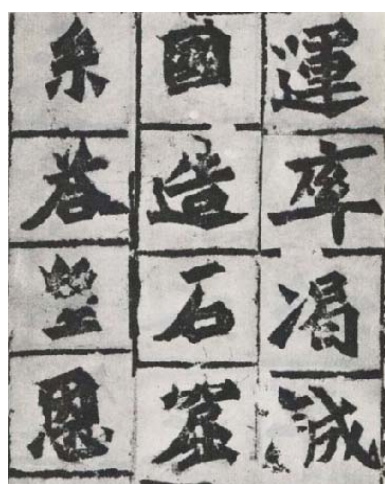 運率渴誠
國造石窟
系荅皇恩